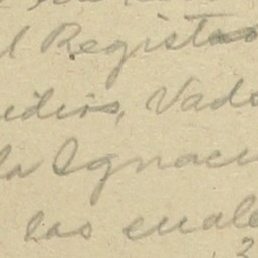 l Registro
edios, Vade
la Ignaci
las cuale